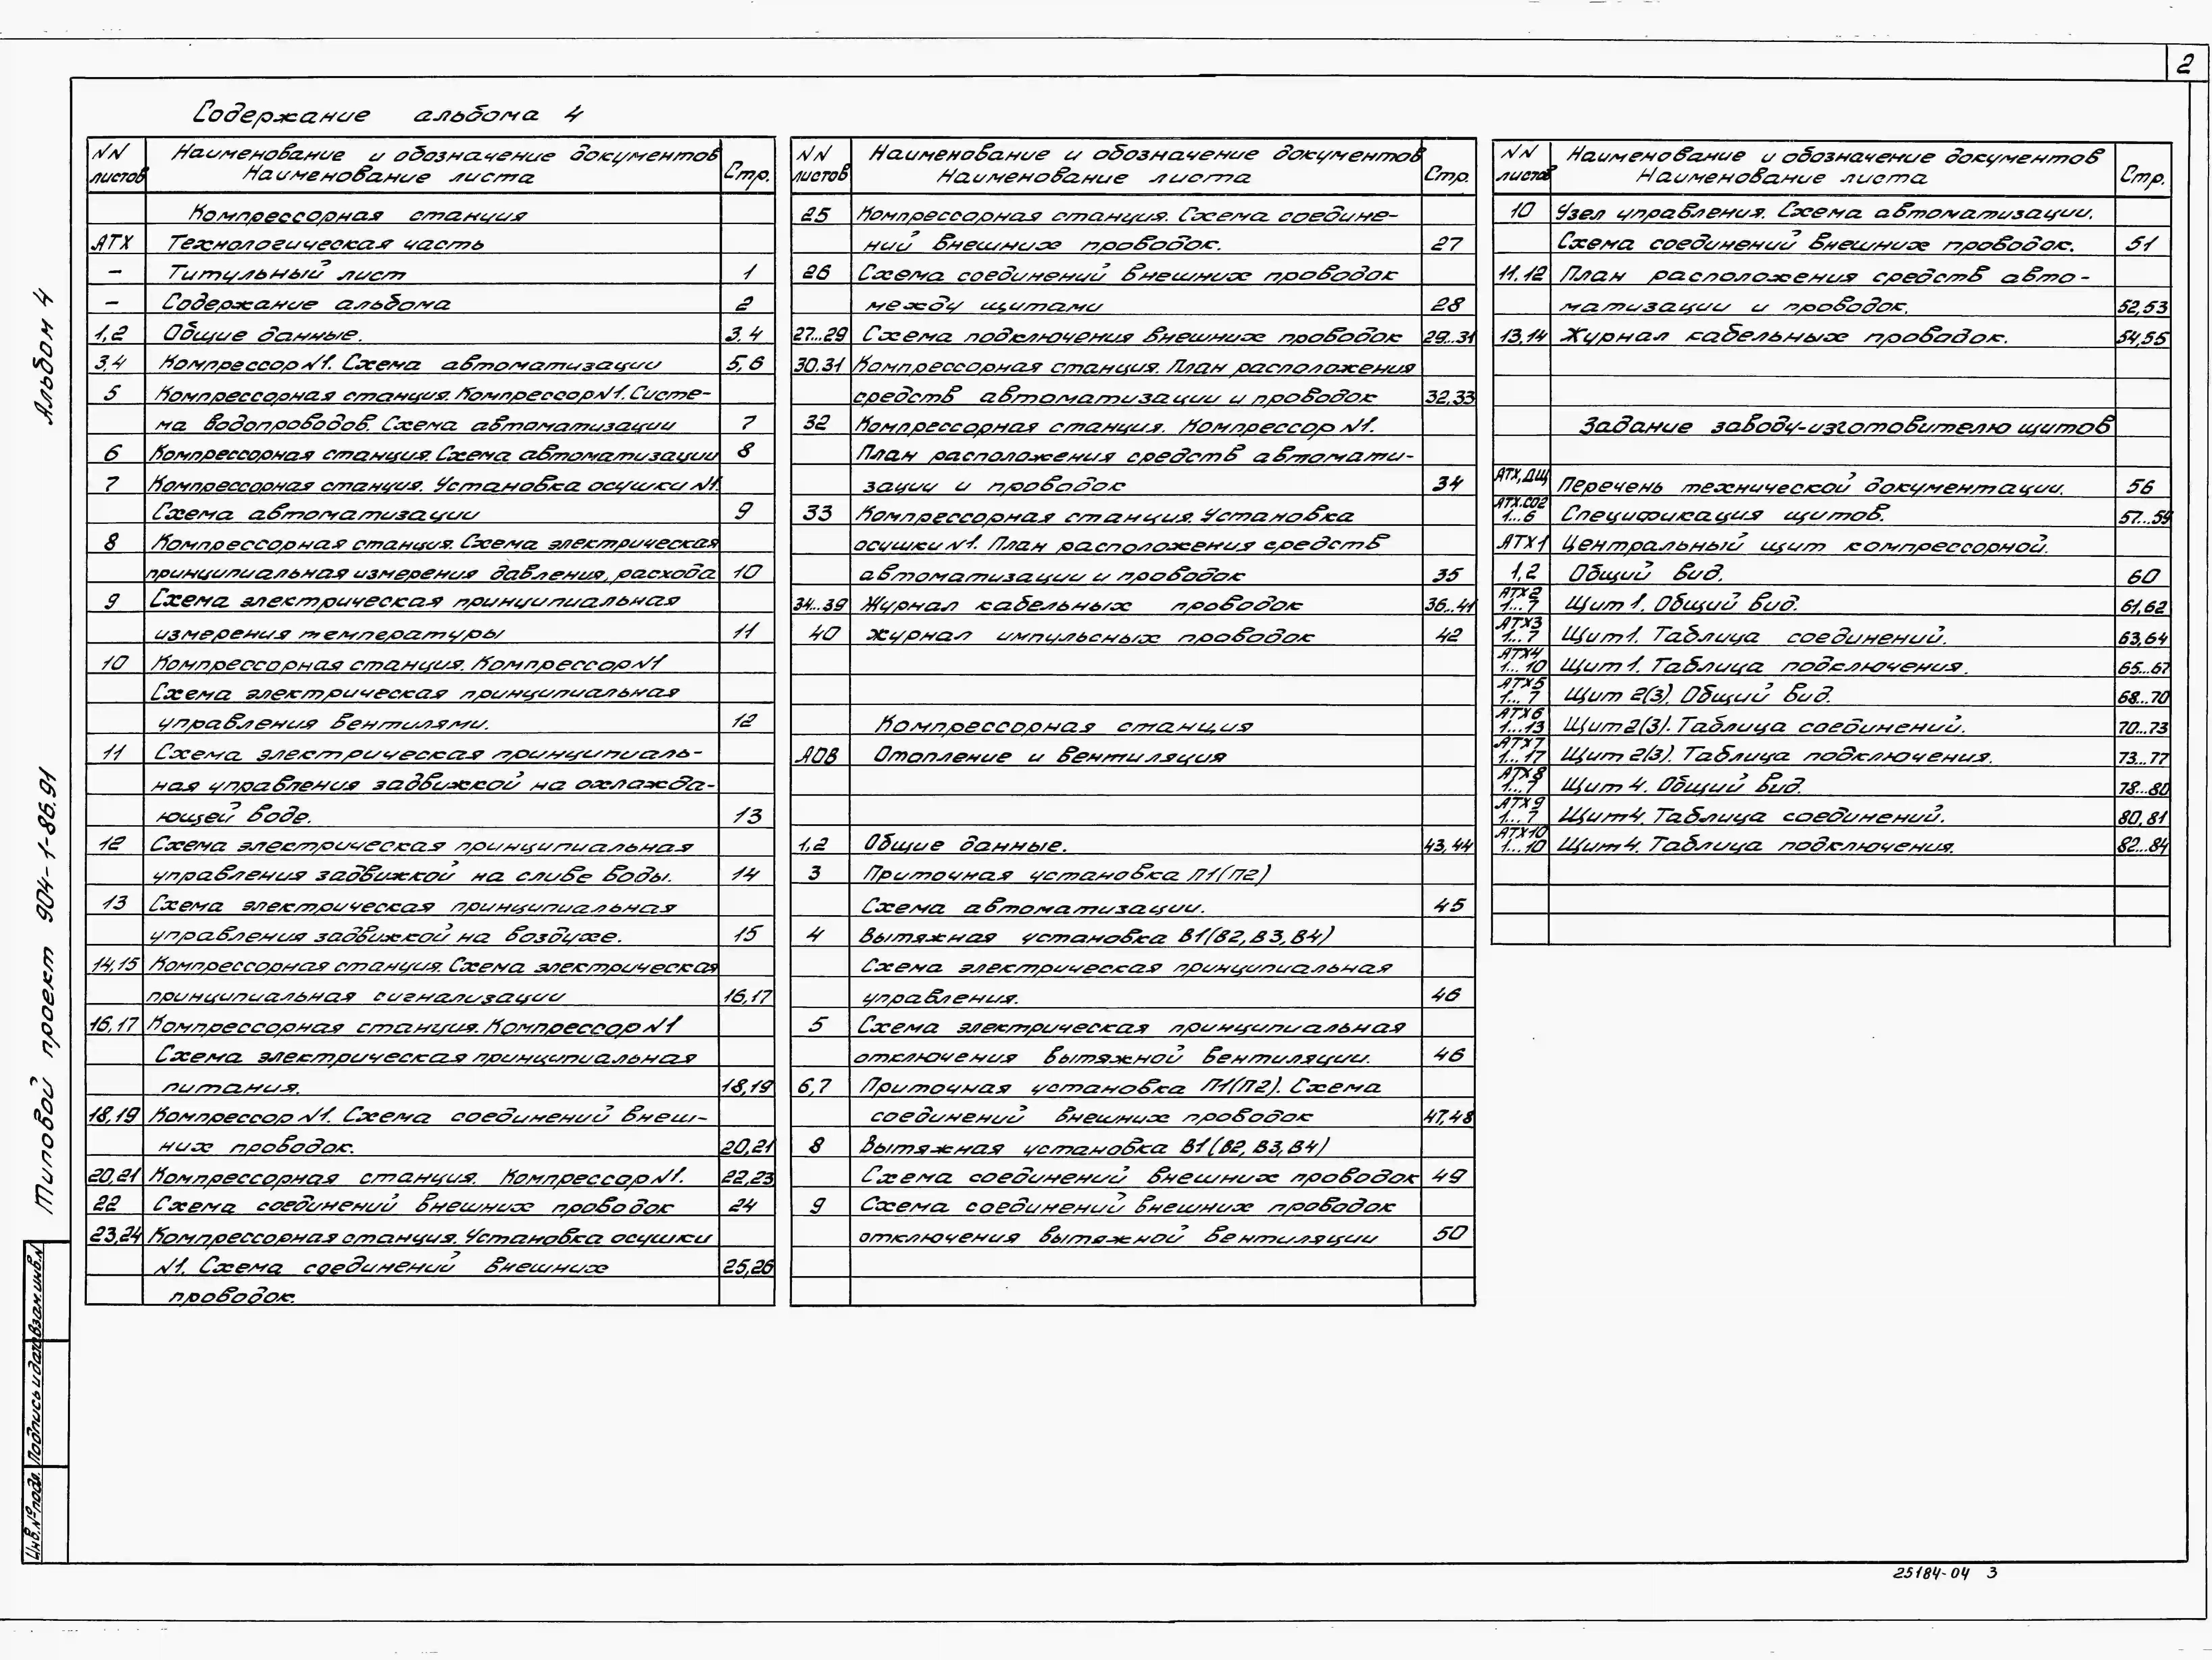 2
Содержание альбома 4
NN листов Наименование и обозначение документов Наименование листа Стр.
Компрессорная станция
АТХ Технологическая часть
– Титульный лист 1
– Содержание альбома 2
1,2 Общие данные. 3.4
3,4 Компрессор N1. Схема автоматизации 5,6
5 Компрессорная станция. Компрессор N1. Систе-
ма водопроводов. Схема автоматизации 7
6 Компрессорная станция. Схема автоматизации 8
7 Компрессорная станция. Установка осушки N1.
Схема автоматизации 9
8 Компрессорная станция. Схема электрическая
принципиальная измерения давления, расхода 10
9 Схема электрическая принципиальная
измерения температуры 11
10 Компрессорная станция. Компрессор N1
Схема электрическая принципиальная
управления вентилями. 12
11 Схема электрическая принципиаль-
ная управления задвижкой на охлажда-
ющей воде. 13
12 Схема электрическая принципиальная
управления задвижкой на сливе воды. 14
13 Схема электрическая принципиальная
управления задвижкой на воздухе. 15
14,15 Компрессорная станция. Схема электрическая
принципиальная сигнализации 16,17
16,17 Компрессорная станция. Компрессор N1
Схема электрическая принципиальная
питания. 18,19
18,19 Компрессор N1. Схема соединений внеш-
них проводок. 20,21
20,21 Компрессорная станция. Компрессор N1. 22,23
22 Схема соединений внешних проводок 24
23,24 Компрессорная станция. Установка осушки
N1. Схема соединений внешних 25,26
проводок.
NN листов Наименование и обозначение документов Наименование листа Стр.
25 Компрессорная станция. Схема соедине-
ний внешних проводок. 27
26 Схема соединений внешних проводок
между щитами 28
27...29 Схема подключения внешних проводок 29...31
30.31 Компрессорная станция. План расположения
средств автоматизации и проводок 32,33
32 Компрессорная станция. Компрессор N1.
План расположения средств автомати-
зации и проводок 34
33 Компрессорная станция. Установка
осушки N1. План расположения средств
автоматизации и проводок 35
34...39 Журнал кабельных проводок 36...41
40 Журнал импульсных проводок 42
Компрессорная станция
АОВ Отопление и вентиляция
1,2 Общие данные. 43,44
3 Приточная установка П1(П2)
Схема автоматизации. 45
4 Вытяжная установка В1(В2,В3,В4)
Схема электрическая принципиальная
управления. 46
5 Схема электрическая принципиальная
отключения вытяжной вентиляции. 46
6,7 Приточная установка П1(П2). Схема
соединений внешних проводок 47,48
8 Вытяжная установка В1(В2,В3,В4)
Схема соединений внешних проводок 49
9 Схема соединений внешних проводок
отключения вытяжной вентиляции 50
NN листов Наименование и обозначение документов Наименование листа Стр.
10 Узел управления. Схема автоматизации.
Схема соединений внешних проводок. 51
11.12 План расположения средств авто-
матизации и проводок. 52,53
13,14 Журнал кабельных проводок. 54,55
Задание заводу-изготовителю щитов
АТХ,ДЩ Перечень технической документации. 56
АТХ.СО2 1...6 Спецификация щитов. 57...59
АТХ1 Центральный щит компрессорной.
1,2 Общий вид. 60
АТХ2 1...7 Щит 1. Общий вид. 61,62
АТХ3 1...7 Щит 1. Таблица соединений. 63,64
АТХ4 1...10 Щит 1. Таблица подключения. 65...67
АТХ5 1...7 Щит 2(3). Общий вид. 68...70
АТХ6 1...13 Щит 2(3). Таблица соединений. 70...73
АТХ7 1...17 Щит 2(3). Таблица подключения. 73...77
АТХ8 1...7 Щит 4. Общий вид. 78...80
АТХ9 1...7 Щит 4. Таблица соединений. 80,81
АТХ10 1...10 Щит 4. Таблица подключения. 82...84
Альбом 4
Типовой проект 904-1-86.91
Взам.инв.N
Подпись и дата
Инв.№ подл.
25184-04 3